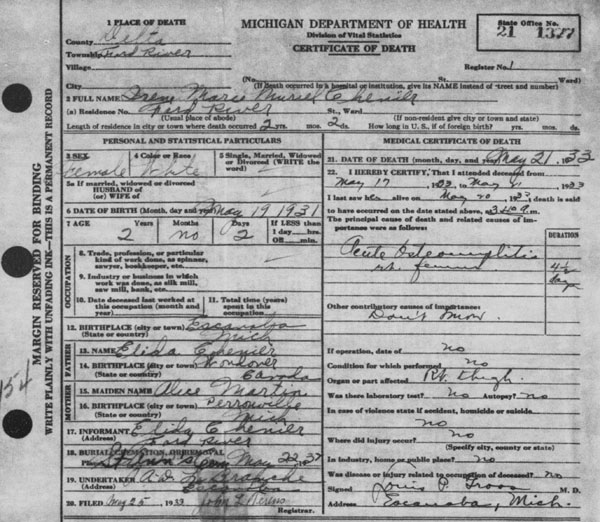 1 PLACE OF DEATH
County Delta
Township Ford River
Village
City
MICHIGAN DEPARTMENT OF HEALTH
Division of Vital Statistics
CERTIFICATE OF DEATH
State Office No.
21 1377
Register No. 1
(No. St., Ward)
(If death occurred in a hospital or institution, give its NAME instead of street and number)
2 FULL NAME Marie Muriel Chenier
(a) Residence No. Ford River St., Ward
(Usual place of abode) (If non-resident give city or town and state)
Length of residence in city or town where death occurred 2 yrs. mos. 2 ds. How long in U. S., if of foreign birth? yrs. mos. ds.
PERSONAL AND STATISTICAL PARTICULARS
3 SEX Female
4 Color or Race White
5 Single, Married, Widowed or Divorced (WRITE the word)
5a If married, widowed or divorced
HUSBAND of
(or) WIFE of
6 DATE OF BIRTH (Month, day and year) May 19 1931
7 AGE Years 2 Months no Days 2
If LESS than
1 day hrs.
OR min.
OCCUPATION
8. Trade, profession, or particular
kind of work done, as spinner,
sawyer, bookkeeper, etc.
9. Industry or business in which
work was done, as silk mill,
saw mill, bank, etc.
10. Date deceased last worked at
this occupation (month and
year)
11. Total time (years)
spent in this
occupation
12. BIRTHPLACE (city or town) Escanaba
(State or country) Mich
FATHER
13. NAME Elida Chenier
14. BIRTHPLACE (city or town)
(State or country)
MOTHER
15. MAIDEN NAME Alice Martin
16. BIRTHPLACE (city or town) Perronville
(State or country) Mich
17. INFORMANT Elida Chenier
(Address) Ford River
18. BURIAL, CREMATION, OR REMOVAL
Place May 22, 33
19. UNDERTAKER
(Address) Escanaba
20. FILED May 25 1933 John
Registrar.
MEDICAL CERTIFICATE OF DEATH
21. DATE OF DEATH (month, day, and year) May 21 33
22. I HEREBY CERTIFY, That I attended deceased from
May 17 1933 to May 21 1933
I last saw her alive on May 20 1933 death is said
to have occurred on the date stated above, at m.
The principal cause of death and related causes of im-
portance were as follows:
DURATION
Acute Osteomyelitis
rt. femur
4½
days
Other contributory causes of importance:
Don't know
If operation, date of no
Condition for which performed no
Organ or part affected Rt. thigh
Was there laboratory test? No Autopsy? no
In case of violence state if accident, homicide or suicide.
no
Where did injury occur? no
(Specify city, county or state)
In industry, home or public place? no
Was disease or injury related to occupation of deceased? no
Signed Louis P. Groos M. D.
Address Escanaba, Mich.
MARGIN RESERVED FOR BINDING
WRITE PLAINLY WITH UNFADING INK—THIS IS A PERMANENT RECORD
154